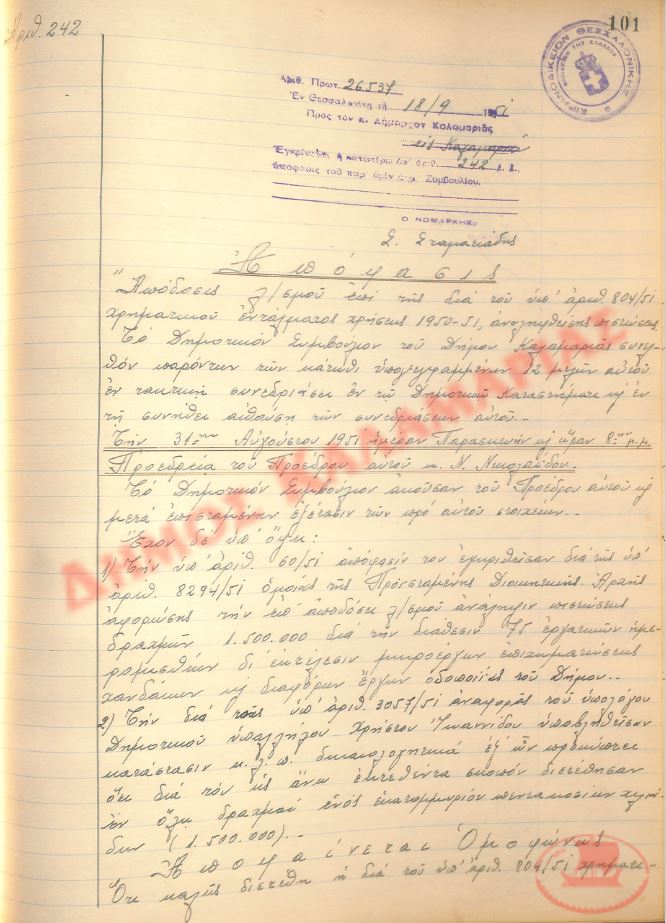 Αριθ. 242
101
ΕΙΡΗΝΟΔΙΚΕΙΟΝ ΘΕΣΣΑΛΟΝΙΚΗΣ
Αριθ. Πρωτ. 26.537
Ἐν Θεσσαλονίκῃ τῇ 18/9 1951
Πρὸς τὸν κ. Δήμαρχον Καλαμαριᾶς
εἰς Καλαμαριά
Ἐγκρίνεται ἡ κατωτέρω ὑπ' ἀριθ. 242 ἔ. ἔ.
ἀπόφασις τοῦ παρ' ὑμῖν Δημ. Συμβουλίου.
Ο ΝΟΜΑΡΧΗΣ
Σ. Σταματιάδης
Ἀπόφασις
"Ἀπόδοσις λ/σμοῦ ἐπὶ τῆς διὰ τοῦ ὑπ' ἀριθ. 804/51
χρηματικοῦ ἐντάλματος χρήσεως 1950-51, ἀναληφθείσης πιστώσεως
Τὸ Δημοτικὸν Συμβούλιον τοῦ Δήμου Καλαμαριᾶς συνελ-
θὸν παρόντων τῶν κάτωθι ὑπογεγραμμένων 12 μελῶν αὐτοῦ
ἐν τακτικῇ συνεδριάσει ἐν τῷ Δημοτικῷ Καταστήματι κ ἐν
τῇ συνήθει αἰθούσῃ τῶν συνεδριάσεων αὐτοῦ.-
Τὴν 31ην Αὐγούστου 1951 ἡμέραν Παρασκευὴν κ ὥραν 8ην μ.μ
Προεδρεία τοῦ Προέδρου αὐτοῦ κ. Ν. Νικολαΐδου.-
Τὸ Δημοτικὸν Συμβούλιον ἀκοῦσαν τοῦ Προέδρου αὐτοῦ κ
μετὰ ἐπισταμένην ἐξέτασιν τῶν πρὸ αὐτοῦ στοιχείων.-
Ἔχον δὲ ὑπ' ὄψει:
1) Τὴν ὑπ' ἀριθ. 60/51 ἀπόφασίν του ἐγκριθεῖσαν διὰ τῆς ὑπ'
ἀριθ. 8294/51 ὁμοίας τῆς Προϊσταμένης Διοικητικῆς Ἀρχῆς
ἀφορώσης τὴν ἐπ' ἀποδόσει λ/σμοῦ ἀνάληψιν πιστώσεως
δραχμῶν 1.500.000 διὰ τὴν διάθεσιν 75 ἐργατικῶν ἡμε-
ρομισθίων δι' ἐκτέλεσιν μικροέργων ἐπιχωματώσεως
χανδάκων κ διαφόρων ἔργων ὁδοποιίας τοῦ Δήμου.-
2) Τὴν διὰ τῆς ὑπ' ἀριθ. 3057/51 ἀναφορᾶς τοῦ ὑπολόγου
Δημοτικοῦ ὑπαλλήλου Χρήστου Ἰωαννίδου ὑποβληθεῖσαν
κατάστασιν κ.λ.π. δικαιολογητικὰ ἐξ ὧν προκύπτει
ὅτι διὰ τὸν ὡς ἄνω ἐκτεθέντα σκοπὸν διετέθησαν
ἐν ὅλῳ δραχμαὶ ἑνὸς ἑκατομμυρίου πεντακοσίων χιλιά-
δων (1.500.000).-
Ἀποφαίνεται Ὁμοφώνως
Ὅτι καλῶς διετέθη ἡ διὰ τοῦ ὑπ' ἀριθ. 804/51 χρηματι-